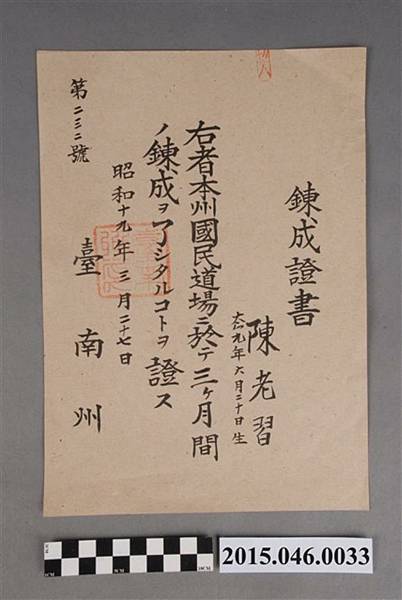 錬成證書
陳老習
大正九年六月二十日生
右者本州國民道場ニ於テ三ヶ月間
ノ錬成ヲ了シタルコトヲ證ス
昭和十九年三月二十七日
臺南州
第二三二號
2015.046.0033